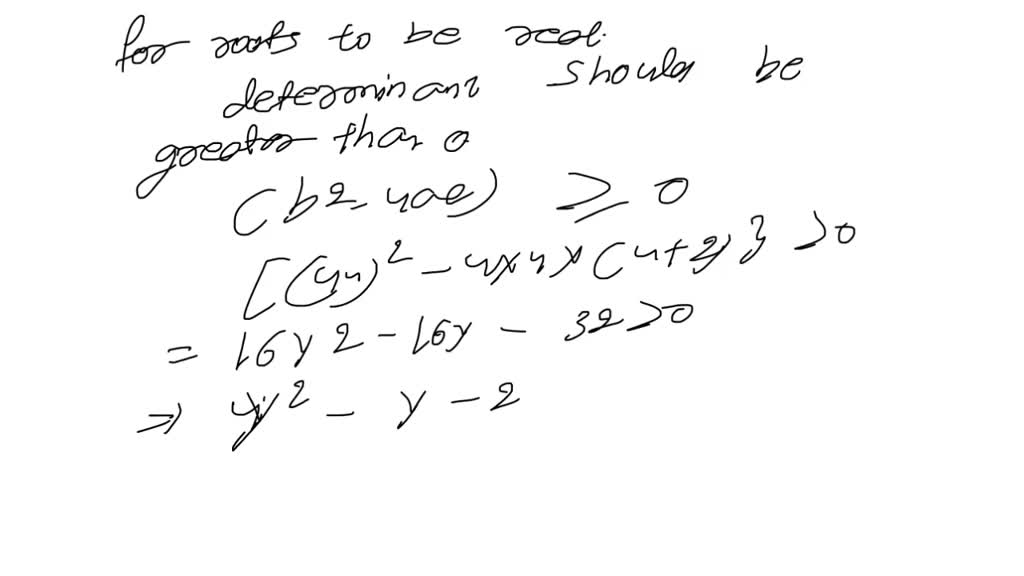 for roots to be real.
determinant should be
greater than 0
(b2-4ac) ≥ 0
[(4y)2 - 4×4×(y+2)} >0
= 16y2 - 16y - 32>0
⇒ 4y2 - y - 2